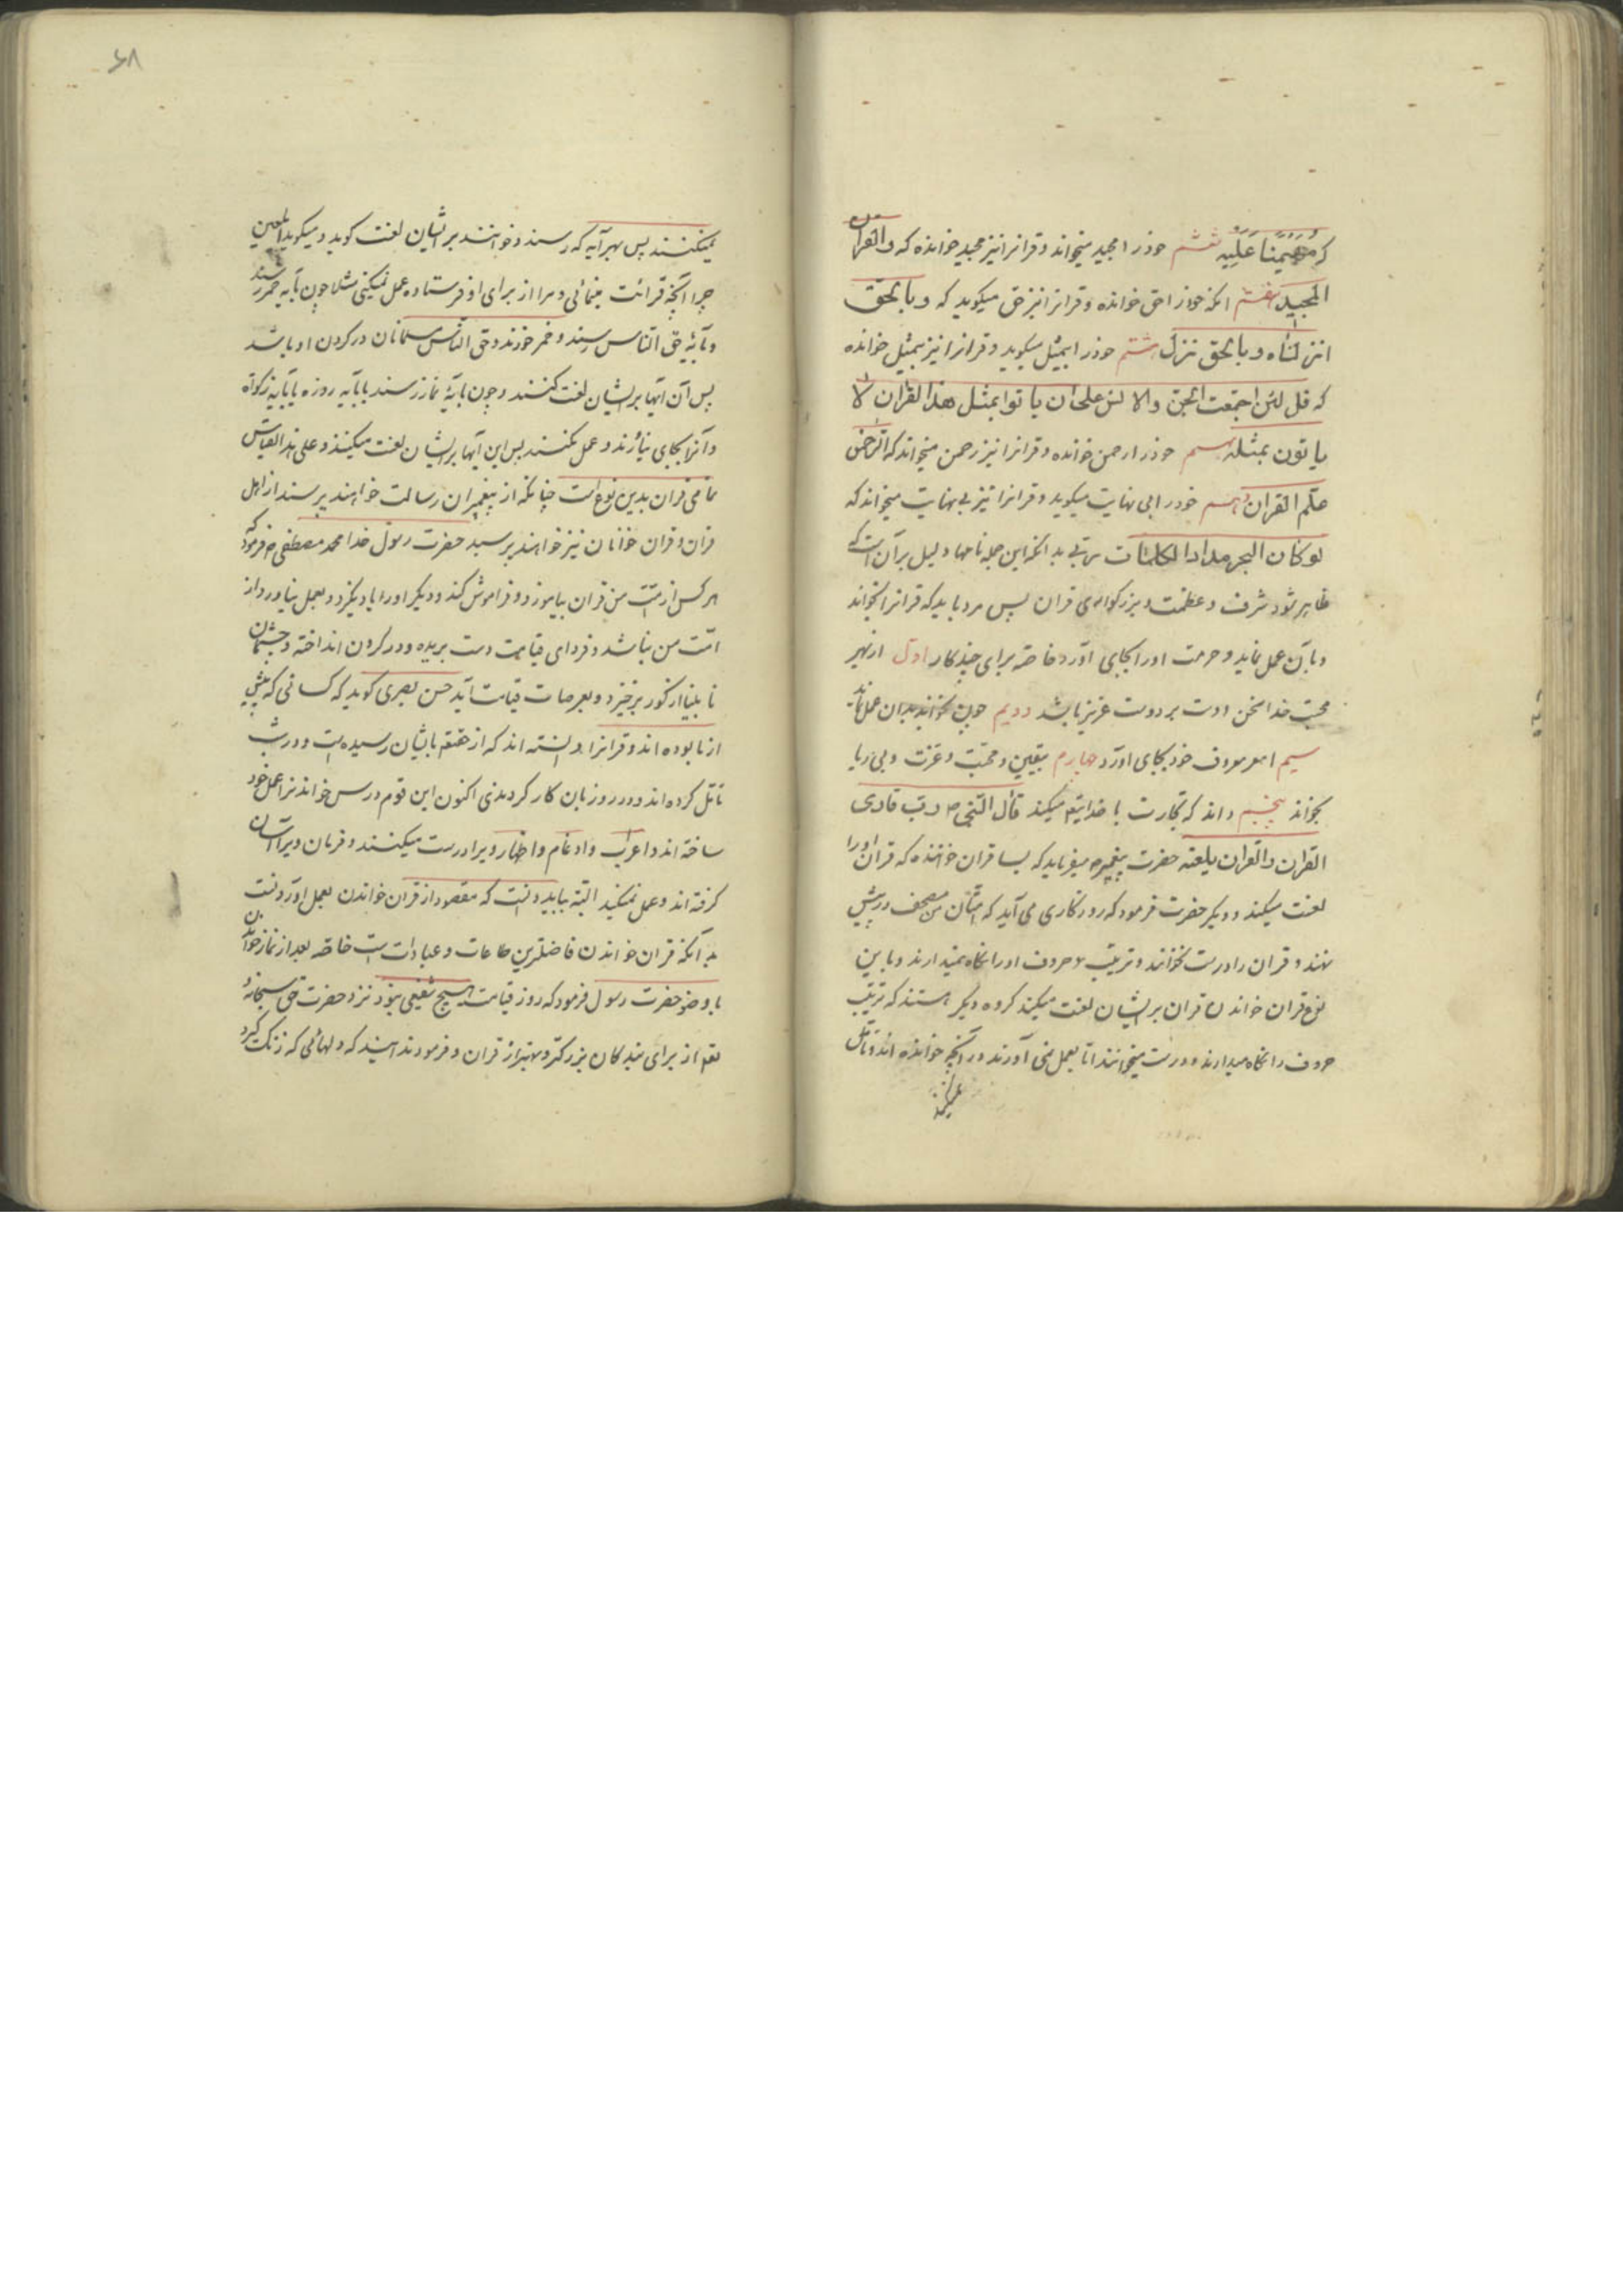 که مهیمنا علیه ششم خودرا مجید میخواند و قرانرا نیز مجید خوانده که والقران
المجید هفتم انکه خودرا حق خوانده و قرانرا نیز حق میکوید که و بالحق
انزلناه و بالحق نزل هشتم خودرا بیمثل میکوید و قرانرا نیز بیمثل خوانده
که قل لئن اجتمعت الجن والانس علی ان یاتوا بمثل هذا القران لا
یاتون بمثله نهم خودرا رحمن خوانده و قرانرا نیز رحمن میخواند که الرحمن
علم القران دهم خودرا بی نهایت میکوید و قرانرا نیز بی نهایت میخواند که
لو کان البحر مدادا لکلمات ربی بدانکه این جمله نامها دلیل بر آن است که
ظاهر شود شرف و عظمت و بزرکواری قران پس مرد باید که قرانرا بخواند
و بآن عمل نماید و حرمت اورا بجای آورد خاصه برای چند کار اول از بهر
محبت خدا سخن دوست بر دوست عزیز باشد دویم چون بخواند بدان عمل نماید
سیم امر معروف خود بجای اورد چهارم بیقین و محبت و عزت و بی ریا
بخواند پنجم داند که تجارت با خدایتع میکند قال النبی ص رب قاری
القران والقران یلعنه حضرت پیغمبر ص میفرماید که بسا قران خواننده که قران اورا
لعنت میکند و دیکر حضرت فرمود که روزکاری می آید که امتان من مصحف در پیش
نهند و قران را درست نخوانند و ترتیب و حروف اورا نکاه نمیدارند و باین
نوع قران خواندن قران بر ایشان لعنت میکند کروه دیکر هستند که ترتیب
حروف را نکاه میدارند و درست میخوانند اما بعمل نمی آورند و در آنچه خوانده اند و تامل
نمیکنند
۶۸
نمیکنند پس بهر آیه که رسند و خوانند بر ایشان لعنت کوید و میکوید ای لعین
چرا آنچه قرائت مینمائی و مرا از برای او فرستاده عمل نمیکنی مثلا چون بآیه خمر رسند
و بآیه حق الناس رسند و خمر خورند و حق الناس مسلمانان در کردن او باشد
پس آن آیها بر ایشان لعنت کنند و چون بآیهٔ نماز رسند یا بآیه روزه یا بآیه زکواة
و آنرا بجای نیارند و عمل نکنند پس این آیها بر ایشان لعنت میکنند و علی هذا القیاس
تمامی قران بدین نوع است چنانکه از پیغمبران رسالت خواهند پرسند از اهل
قران و قران خوانان نیز خواهند پرسید حضرت رسول خدا محمد مصطفی ص فرمود که
هر کس از امت من قران بیاموزد و فراموش کند و دیکر اورا یاد نکیرد و بعمل نیاورد از
امت من نباشد و فردای قیامت دست بریده و در کردن انداخته و چشمان
نابینا از کور برخیزد و بعرصات قیامت آید حسن بصری کوید که کسانی که پیش
از ما بوده اند و قرانرا دانسته اند که از حقتع بایشان رسیده است و در شب
تامل کرده اند و در روز بان کار کردندی اکنون این قوم درس خواندنرا عمل خود
ساخته اند و اعراب و ادغام و اظهار ویرا درست میکنند و فرمان ویرا آسان
کرفته اند و عمل نمیکنند البته بباید دانست که مقصود از قران خواندن بعمل آوردنست
بدانکه قران خواندن فاضلترین طاعات و عبادات است خاصه بعد از نماز خواندن
با وضو حضرت رسول فرمود که روز قیامت هیچ شفیعی نبود نزد حضرت حق سبحانه و
تعه از برای بندکان بزرکتر و بهتر از قران و فرمودند آهسته که دلهائی که زنک کیرد